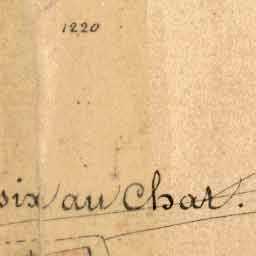 1220
oix au Chat.